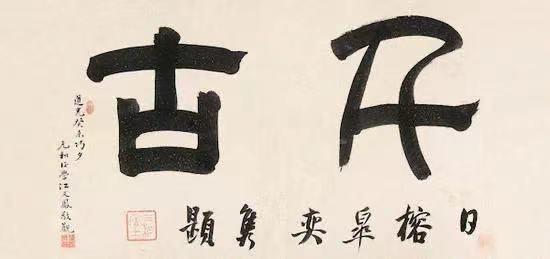 古
日榕皋奕雋題
道光癸未巧夕
元和後學江文鳳敬觀